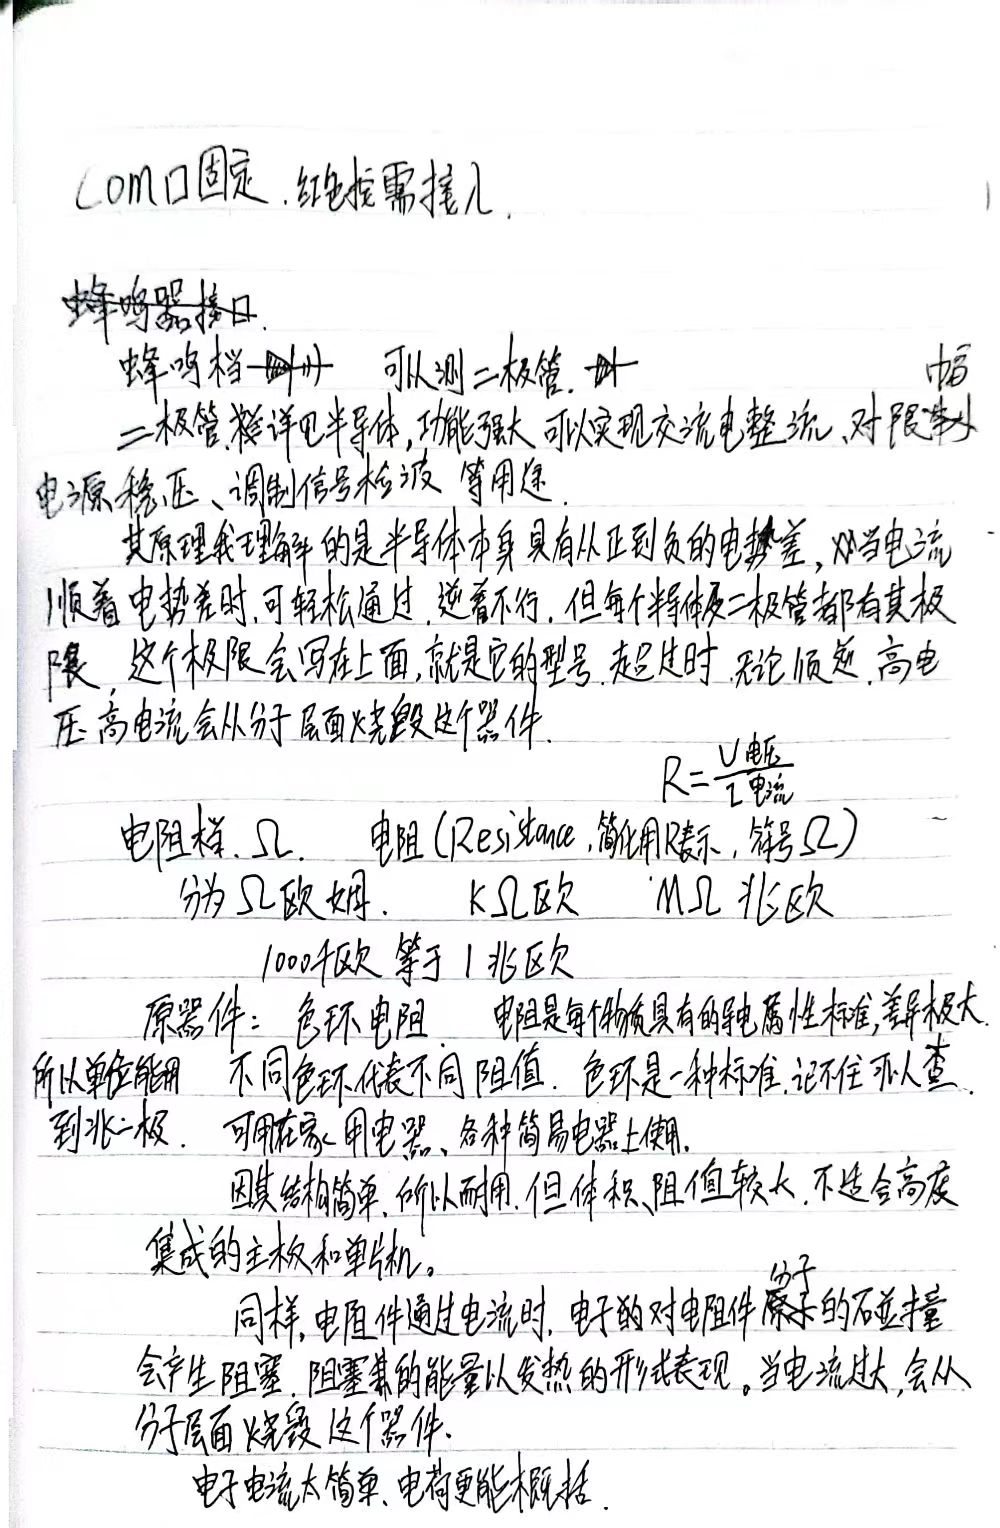 COM口固定、红色按需接入.
蜂鸣器接口.
蜂鸣档 可以测二极管.
二极管 详见半导体,功能强大、可以实现交流电整流、对限幅
电源稳压、调制信号检波 等用途.
其原理我理解的是半导体本身具有从正到负的电势差, 当电流
顺着电势差时,可轻松通过,逆着不行,但每个半导体及二极管都有其极
限,这个极限会写在上面,就是它的型号.超过时,无论顺逆,高电
压高电流会从分子层面烧毁这个器件.
R=U电压/I电流
电阻档、Ω. 电阻(Resistance,简化用R表示,符号Ω)
分为Ω欧姆. KΩ欧 MΩ兆欧
1000千欧等于1兆欧
原器件: 色环电阻. 电阻是每个物质具有的导电属性标准,差异极大.
所以单位能用 不同色环代表不同阻值. 色环是一种标准,记不住可以查.
到兆级. 可用在家用电器、各种简易电器上使用.
因其结构简单,所以耐用.但体积、阻值较大,不适合高度
集成的主板和单片机。
同样,电阻件通过电流时,电子的对电阻件分子的碰撞
会产生阻塞.阻塞的能量以发热的形式表现。当电流过大,会从
分子层面烧毁这个器件.
电子电流太简单、电荷更能概括.